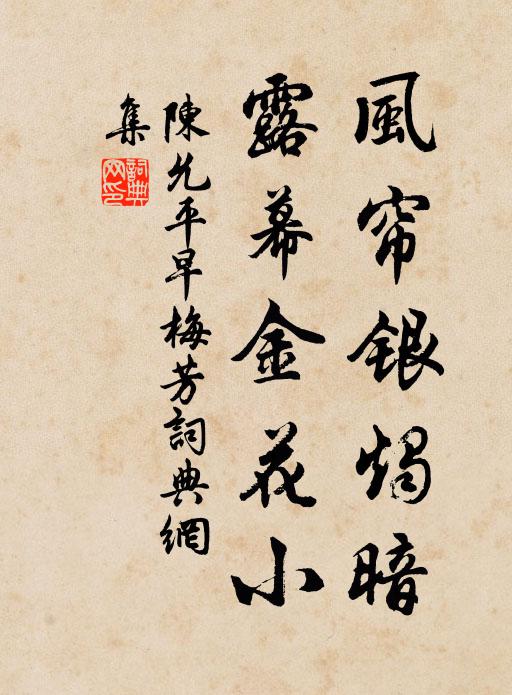 風帘銀燭暗
露幕金花小
陳允平早梅芳詞典網
集
詞典
网印